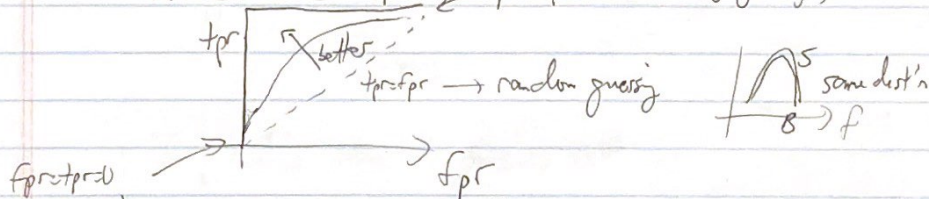 tpr
better
tpr=fpr → random guessing
S
same dist'n
B
f
fpr=tpr=0
fpr